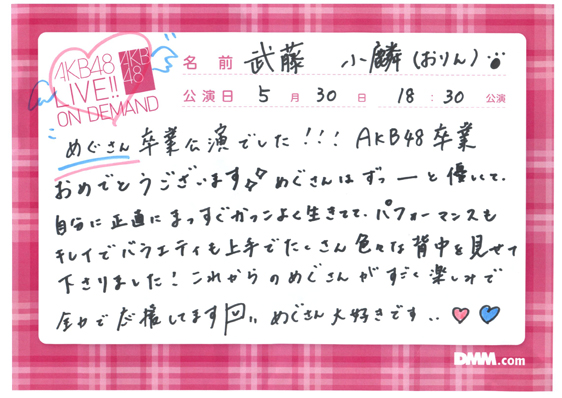 AKB48
LIVE!!
ON DEMAND
AKB
48
名前 武藤 小麟(おりん)
公演日 5月30日 18:30公演
めぐさん卒業公演でした!!! AKB48卒業
おめでとうございます めぐさんはずっーと優しくて、
自分に正直にまっすぐかっこよく生きてて、パフォーマンスも
キレイでバラエティも上手でたくさん色々な背中を見せて
下さりました!これからのめぐさんがすごく楽しみで
全力で応援してます めぐさん大好きです..
DMM.com